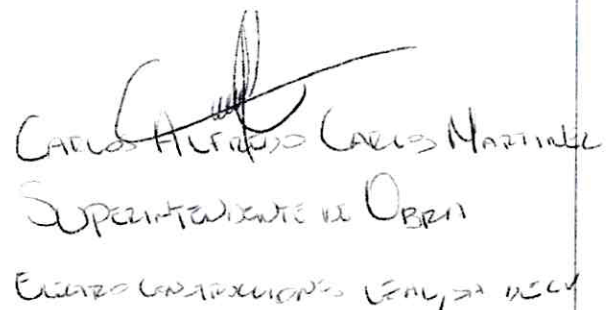 Carlos Alfredo Carlos Martinez
Superintendente de Obra
Electro Construcciones SA de CV